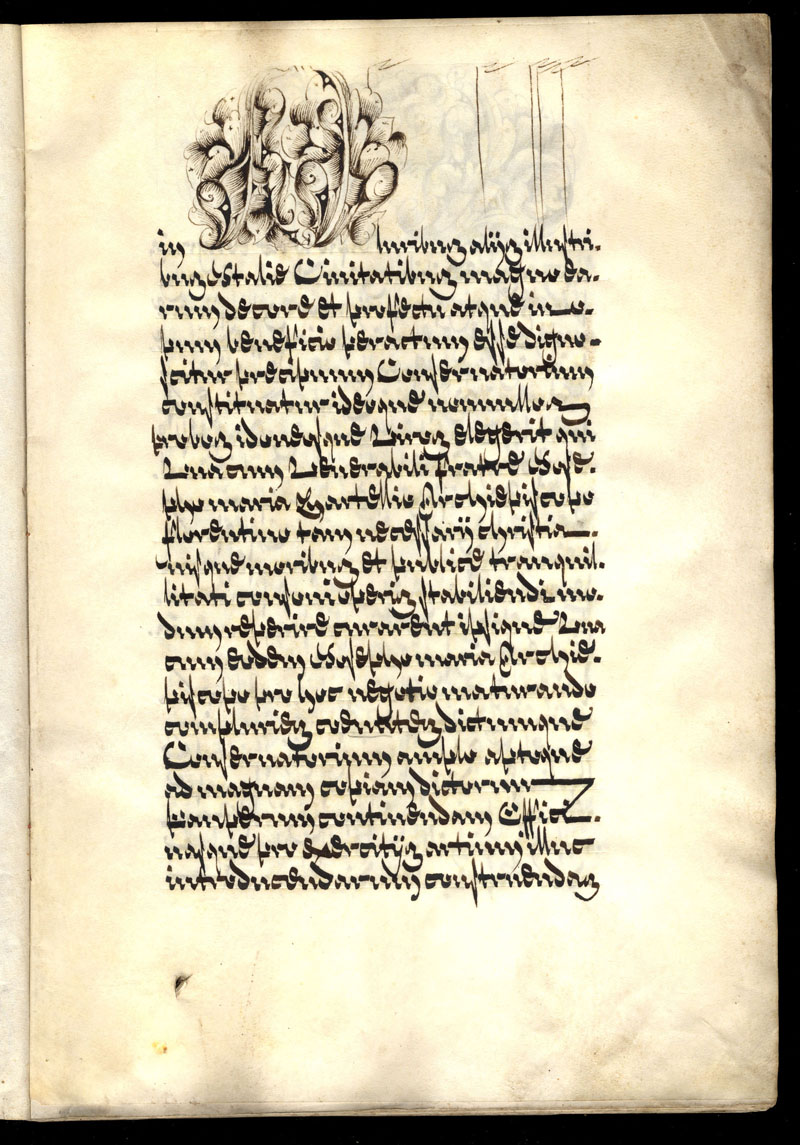 in pluribuz alijz illustri-
buz Italie Ciuitatibuz magno ea-
rum decore et profectu atque ino-
pum beneficio peractum esse digno-
scitur precipuum Conseruatorium
constituatur ideoque nonnulloz
proboz idoneosque Viroz elegerit qui
Vnacum Venerabili fratre Iose-
pho maria Martellio Archiepiscopo
florentino tam necessarij christia-
nisque moribuz et publice tranquil-
litati consoni operiz stabiliendi mo-
dum reperire curarent ipsique Vna
cum eodem Iosepho maria Archie-
piscopo pro hoc negotio maturando
compluriez coeuntez dictumque
Conseruatorium amplo aptoque
ad magnam copiam dictorum
pauperum continendam Offici-
nasque pro exercitijz artium illuc
introducendarum construendaz